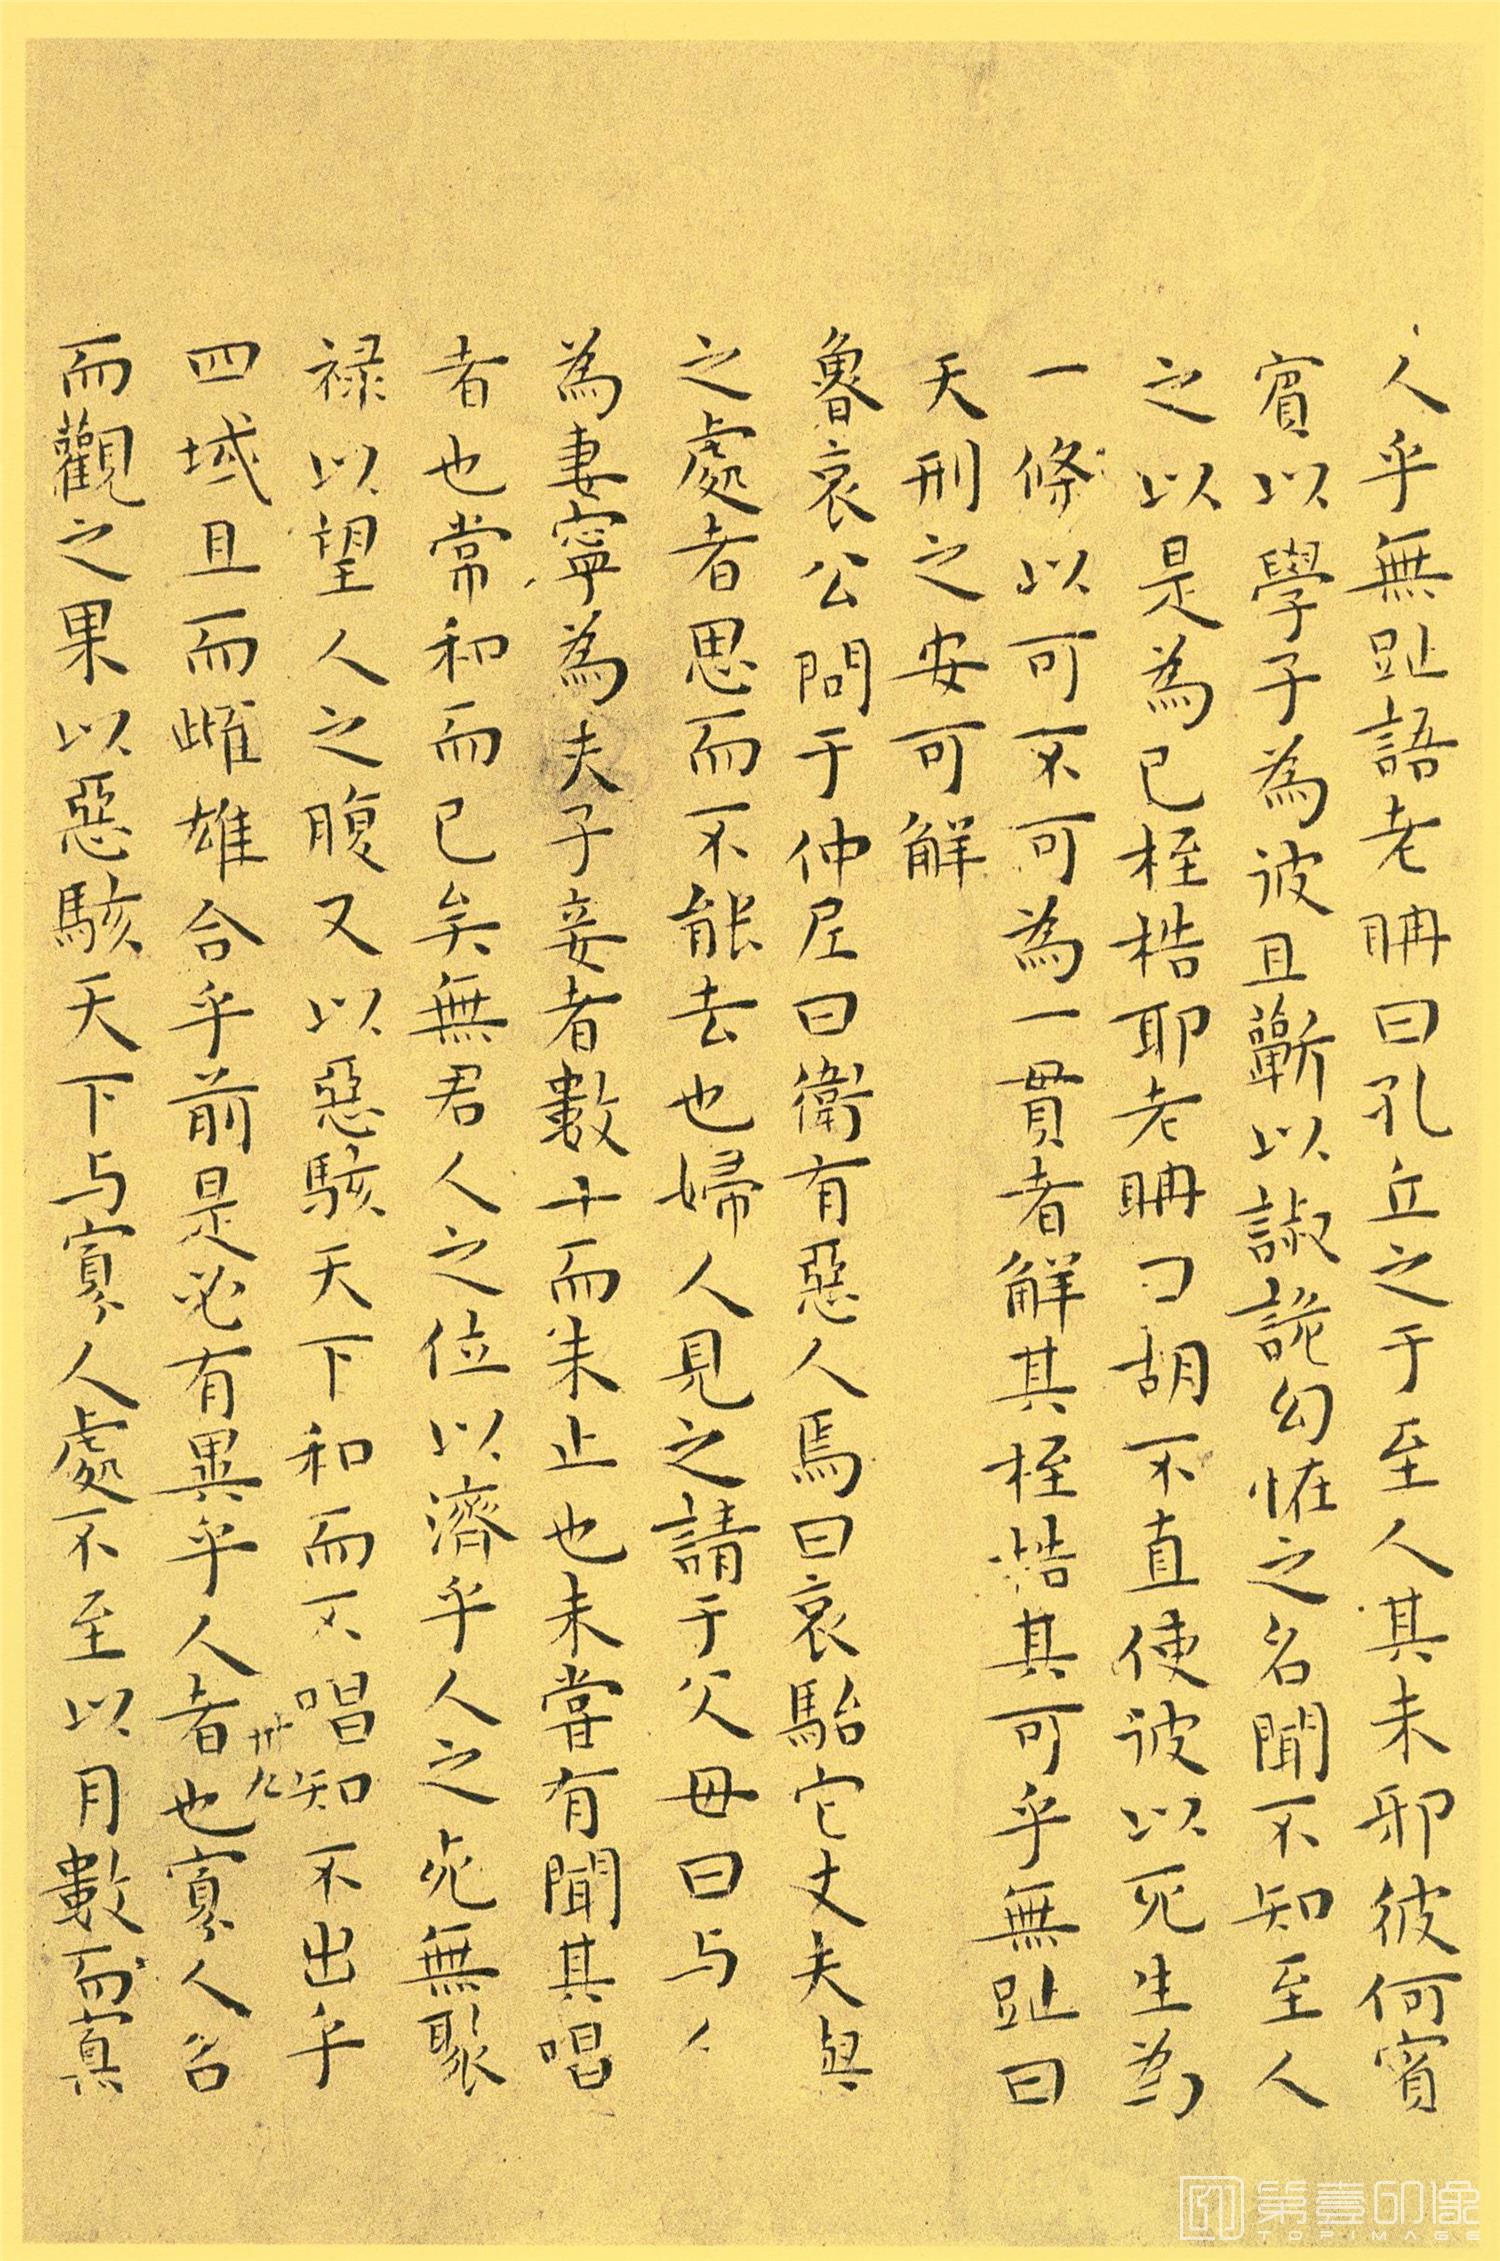 人乎無趾語老聃曰孔丘之于至人其未邪彼何賓
賓以學子為彼且蘄以諔詭幻怪之名聞不知至人
之以是為己桎梏耶老聃曰胡不直使彼以死生為
一條以可不可為一貫者解其桎梏其可乎無趾曰
天刑之安可解
魯哀公問于仲尼曰衛有惡人焉曰哀駘它丈夫與
之處者思而不能去也婦人見之請于父母曰与人
為妻寧為夫子妾者數十而未止也未嘗有聞其唱
者也常和而已矣無君人之位以濟乎人之死無聚
祿以望人之腹又以惡駭天下和而不唱知不出乎
四域且而雌雄合乎前是必有異乎人者也寡人召
而觀之果以惡駭天下与寡人處不至以月數而寡
第壹印像
TOPIMAGE